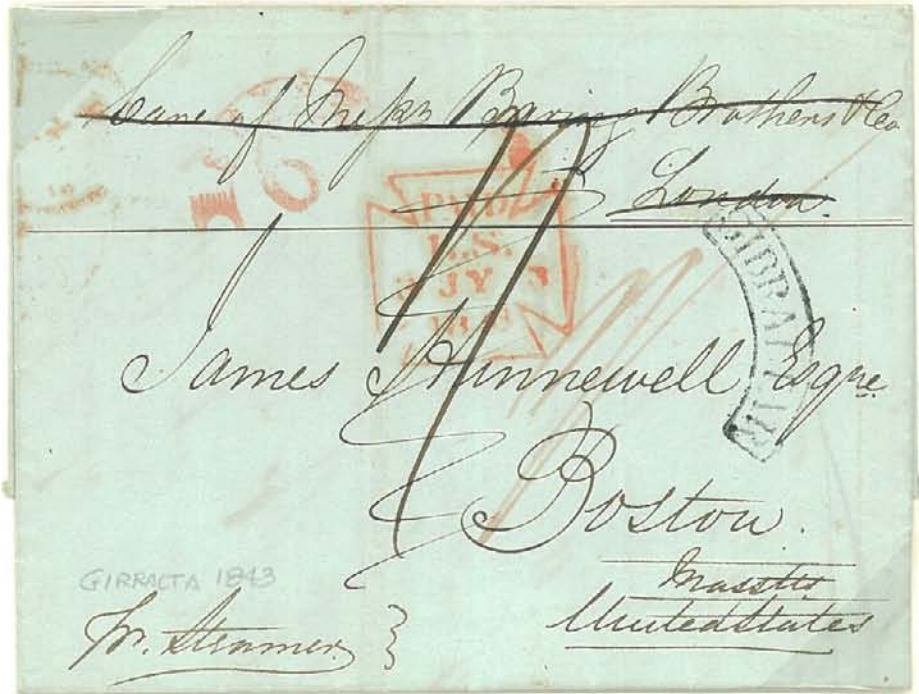 Care of Messrs Baring Brothers & Co
London
PAID
L.S.
3 JY 3
GIBRALTAR
James Hunnewell Esqre
Boston.
Masstts
United States
GIRRALTA 1843
pr. Steamer